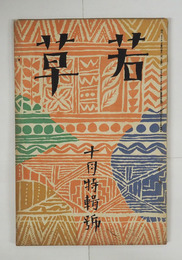 若草
十月特輯號